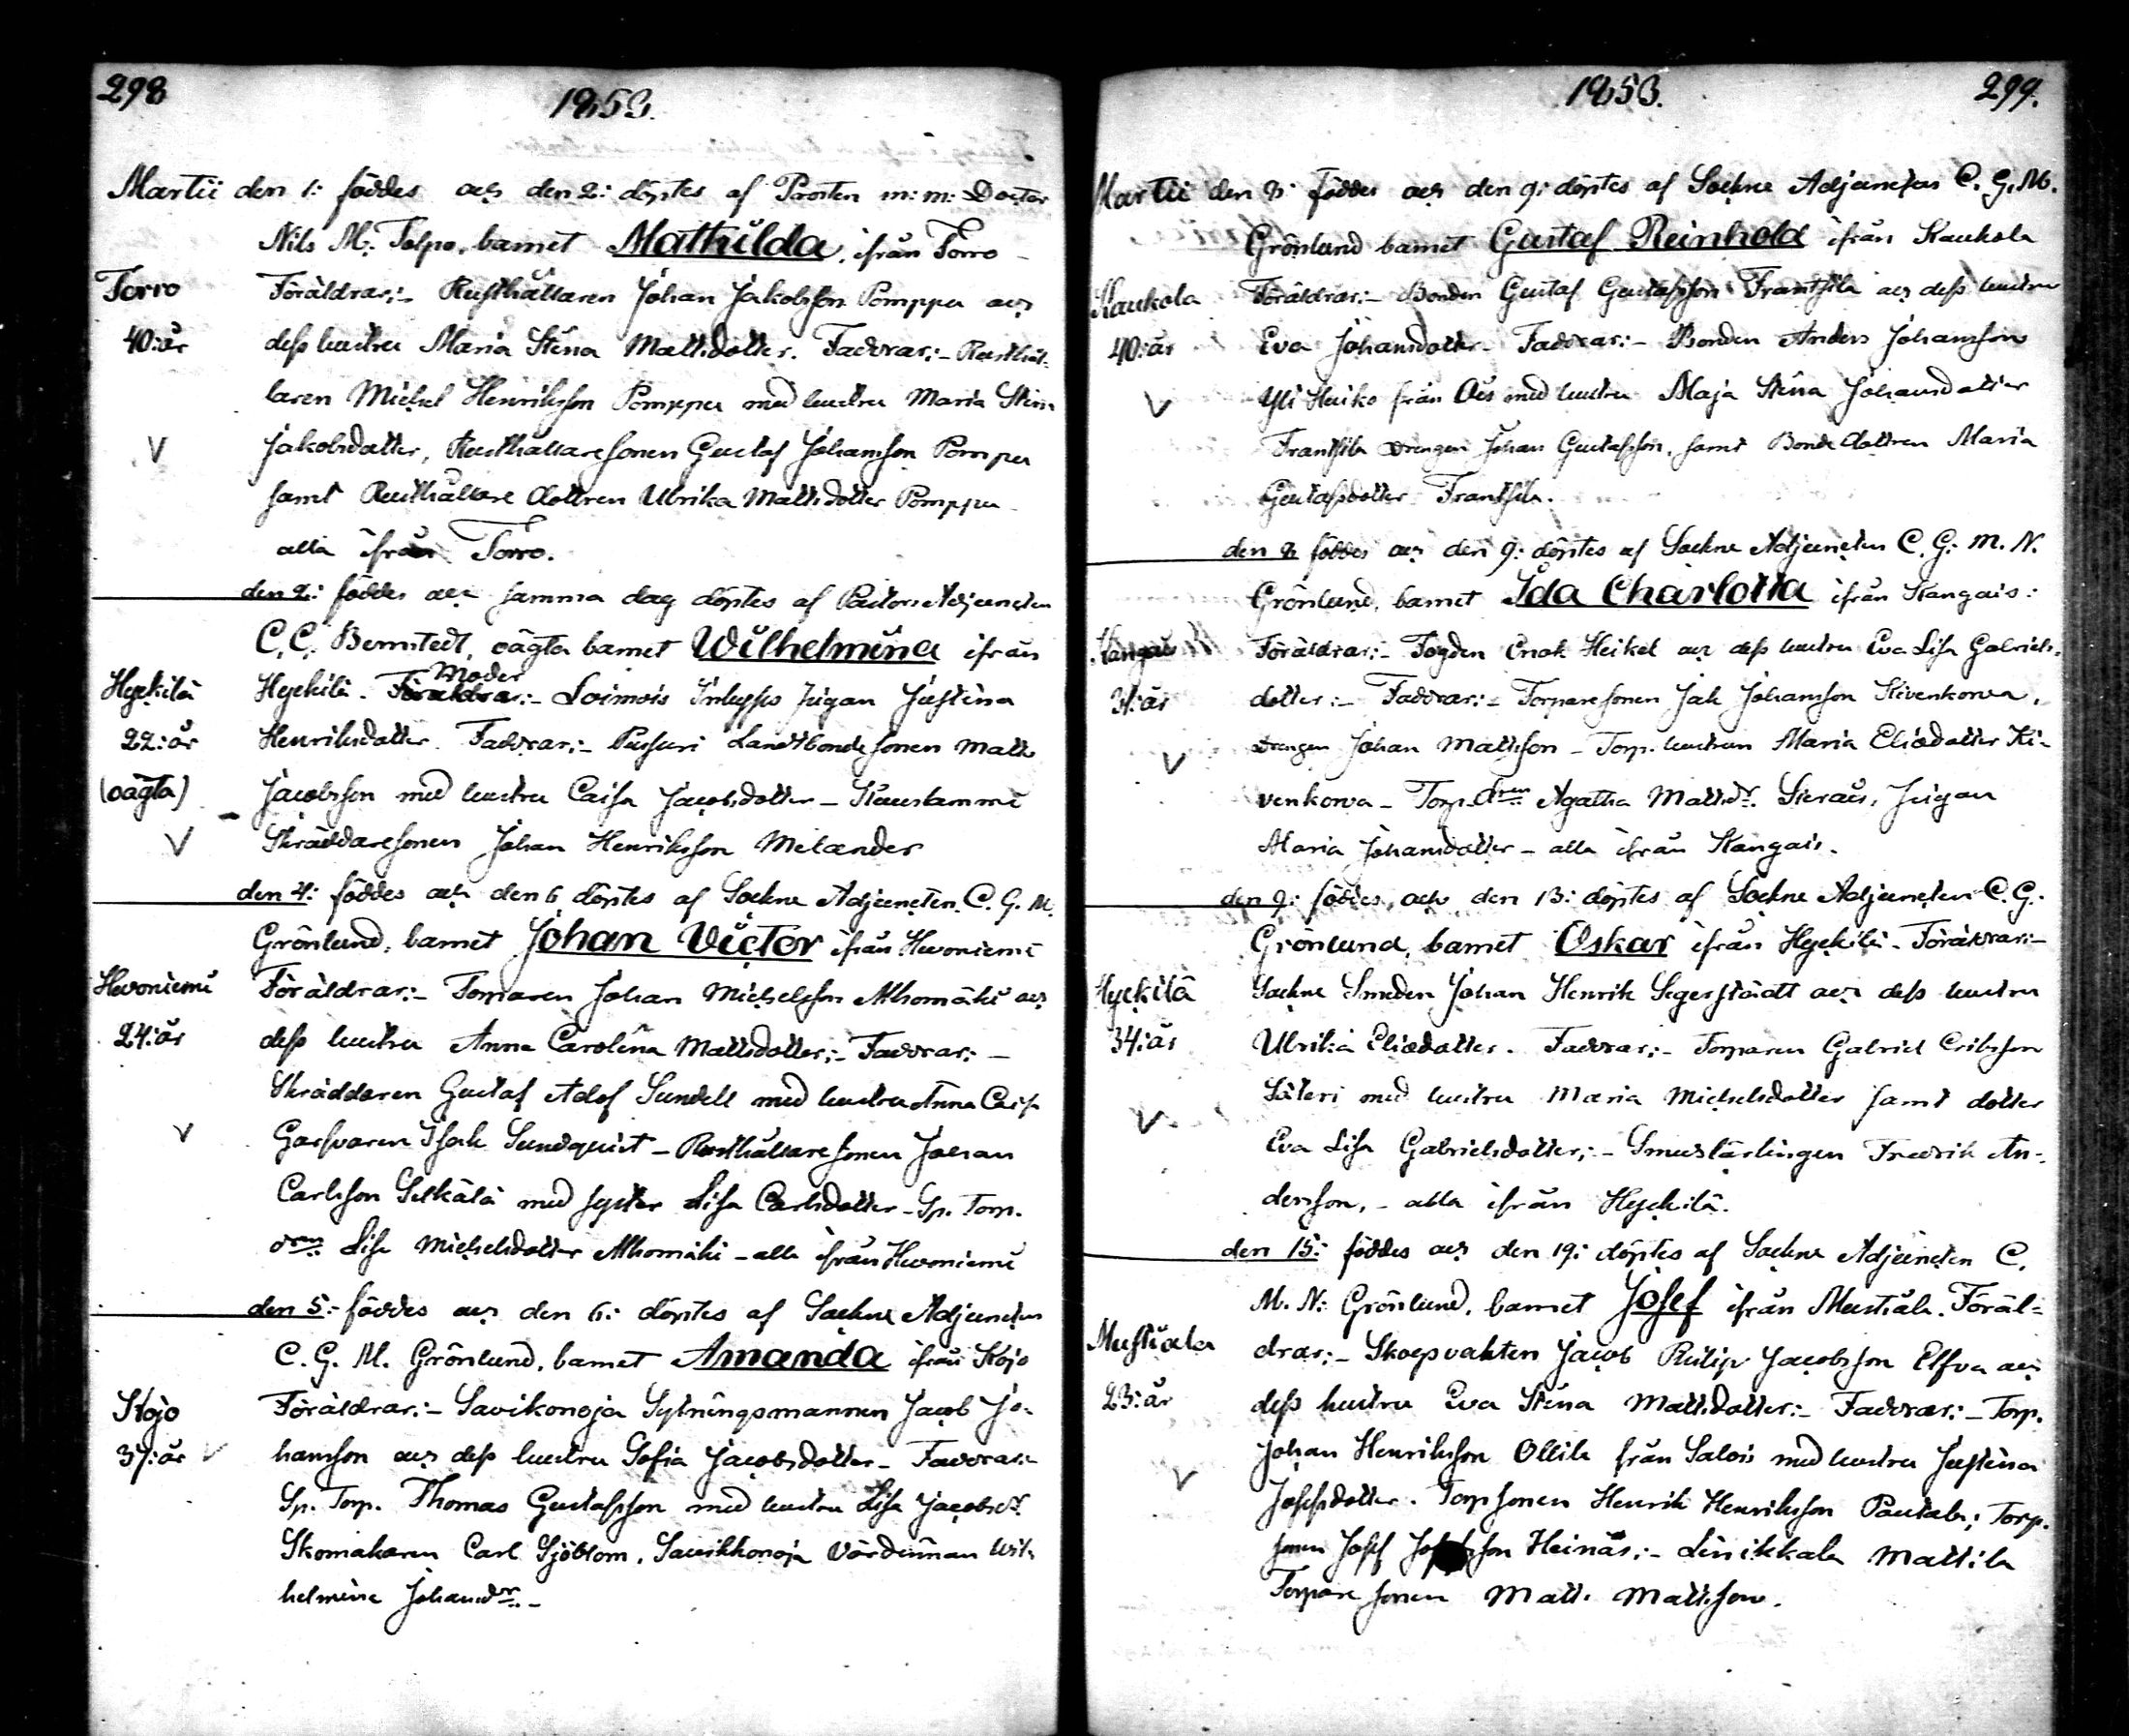 298
1853.
Martii den 1: föddes och den 2: döptes af Prosten m: m: Doctor
Nils M. Tolpo, barnet Mathilda, ifrån Torro
Torro
Föräldrar:- Rusthållaren Johan Jakobsson Pomppu och
40: år
dess hustru Maria Stina Mattsdotter. Faddrar:- Rusthål-
laren Michel Henriksson Pomppu med hustru Maria Stina
Jakobsdotter, Rusthållaresonen Gustaf Johansson Pomppu
samt Rusthållare dottren Ulrika Mattsdotter Pomppu
alla ifrån Torro.
den 2: föddes och samma dag döptes af Pastors Adjuncten
C. C. Bernstedt, oägta barnet Wilhelmina ifrån
Moder
Hyykilä
Hyykilä. Föräldrar:- Loimois Inhysses Pigan Justina
22: år
Henriksdotter. Faddrar:- Pussuri Landtbondesonen Matts
(oägta)
Jacobsson med hustru Caisa Jacobsdotter - Kuustammi
Skräddaresonen Johan Henriksson Melander
den 4: föddes och den 6 döptes af Sockne Adjuncten C. G. M.
Grönlund, barnet Johan Victor ifrån Hevoniemi
Hevoniemi
Föräldrar:- Torparen Johan Michelsson Ahomäki och
24: år
dess hustru Anna Carolina Mattsdotter:- Faddrar:-
Skräddaren Gustaf Adolf Sundell med hustru Anna Caisa
Garfvaren Isak Sundquist - Rusthållaresonen Johan
Carlsson Selkälä med syster Lisa Carlsdotter - Sp. Torp.
dren Lisa Michelsdotter Ahomäki - alla ifrån Hevoniemi
den 5: föddes och den 6: döptes af Sockne Adjuncten
C. G. M. Grönlund, barnet Amanda ifrån Kojo
Kojo
Föräldrar:- Savikonoja Sytningsmannen Jacob Jo-
37: år
hansson och dess hustru Sofia Jacobsdotter - Faddrar:-
Sp. Torp. Thomas Gustafsson med hustru Lisa Jacobsdr
Skomakaren Carl Sjöblom, Savikkonoja Värdinnan Wil-
helmina Johansdr. -
1853.
299.
Martii den 8: föddes och den 9: döptes af Sockne Adjuncten C. G. M.
Grönlund barnet Gustaf Reinhold ifrån Kaukola
Kaukola
Föräldrar:- Bonden Gustaf Gustafsson Frantsila och dess hustru
40: år
Eva Johansdotter - Faddrar:- Bonden Anders Johansson
Yli Heiko från Ois med hustru Maja Stina Johansdotter
Frantsila Drengen Johan Gustafsson, samt Bonde dottren Maria
Gustafsdotter Frantsila.
den 8 föddes och den 9: döptes af Sockne Adjuncten C. G: M. N.
Grönlund, barnet Ida Charlotta ifrån Kangais:
Kangais
Föräldrar:- Fogden Enok Heikel och dess hustru Eva Lisa Gabriels-
31: år
dotter:- Faddrar:- Torparesonen Jak Johansson Kivenkorva,
Drengen Johan Mattsson - Torp. hustrun Maria Eliædotter Ki-
venkorva - Torp. dren Agatha Mattsdr. Sieräis, Pigan
Maria Johansdotter - alla ifrån Kangais.
den 9: föddes och den 13: döptes af Sockne Adjuncten C. G.
Grönlund, barnet Oskar ifrån Hyykilä - Föräldrar:-
Hyykilä
Sockne Smeden Johan Henrik Segerstådt och dess hustru
34: år
Ulrika Eliædotter. Faddrar:- Torparen Gabriel Eriksson
Säteri med hustru Maria Michelsdotter samt dotter
Eva Lisa Gabrielsdotter:- Smedslärlingen Fredrik An-
dersson, - alla ifrån Hyykilä.
den 15: föddes och den 19: döptes af Sockne Adjuncten C.
M. N: Grönlund, barnet Josef ifrån Mustiala. Föräl-
Mustiala
drar:- Skogsvakten Jacob Philip Jacobsson Elfva och
23: år
dess hustru Eva Stina Mattsdotter:- Faddrar:- Torp.
Johan Henriksson Ollila från Salois med hustru Justina
Josefsdotter. Torpsonen Henrik Henriksson Pautala; Torp.
sonen Josef Heinäs:- Linikkala Mattila
Torpare sonen Matts Mattsson.